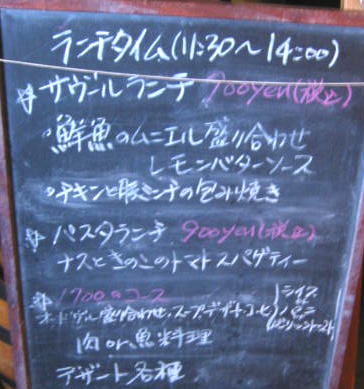 ランチタイム(11:30〜14:00)
サヴールランチ 900yen(税込)
鮮魚のムニエル盛り合わせ
レモンバターソース
チキンと豚ミンチの包み焼き
パスタランチ 900yen(税込)
ナスときのこのトマトスパゲティー
1700のコース
オードヴル盛り合わせ、スープ、デザート、コーヒー
ライス
パン
肉or魚料理
デザート各種